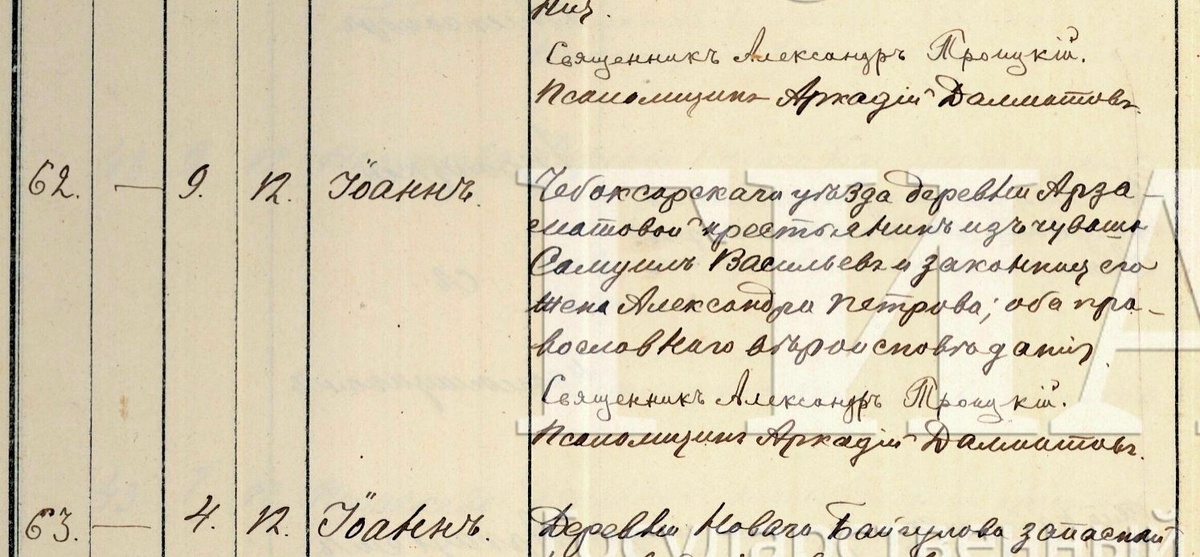 ниq.
Священникъ Александръ Троицкій.
Псаломщикъ Аркадій Далматовъ.
62. — 9. 12. Іоаннъ. Чебоксарскаго уѣзда деревни Арза
матовой крестьянинъ изъ чувашъ
Самуилъ Васильевъ и законная его
жена Александра Петрова; оба пра-
вославнаго вѣроисповѣданія.
Священникъ Александръ Троицкій.
Псаломщикъ Аркадій Далматовъ.
63. — 4. 12. Іоаннъ. Деревни Новаго Байгулова запасный